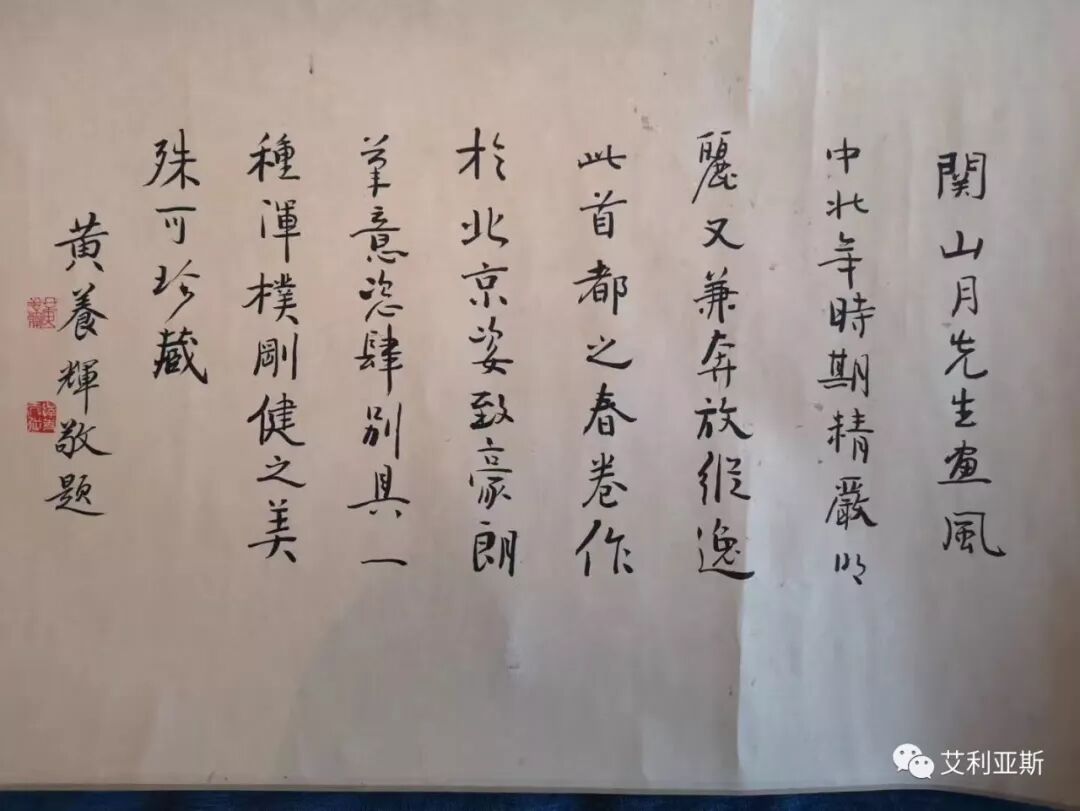 関山月先生畫風
中壮年時期精嚴明
麗又兼奔放縱逸
此首都之春卷作
於北京姿致豪朗
筆意恣肆別具一
種渾樸剛健之美
殊可珍藏
黃養輝敬題
艾利亚斯